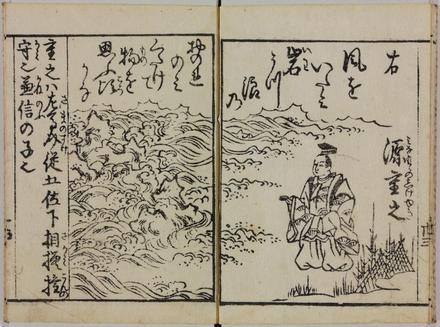 右
風を
いたみ
岩
うつ
浪
乃
源重之
おのれ
のみ
くだけて
物を
思ふ頃
かな
重之ハ左馬助従五位下相模権
守兼信の子也